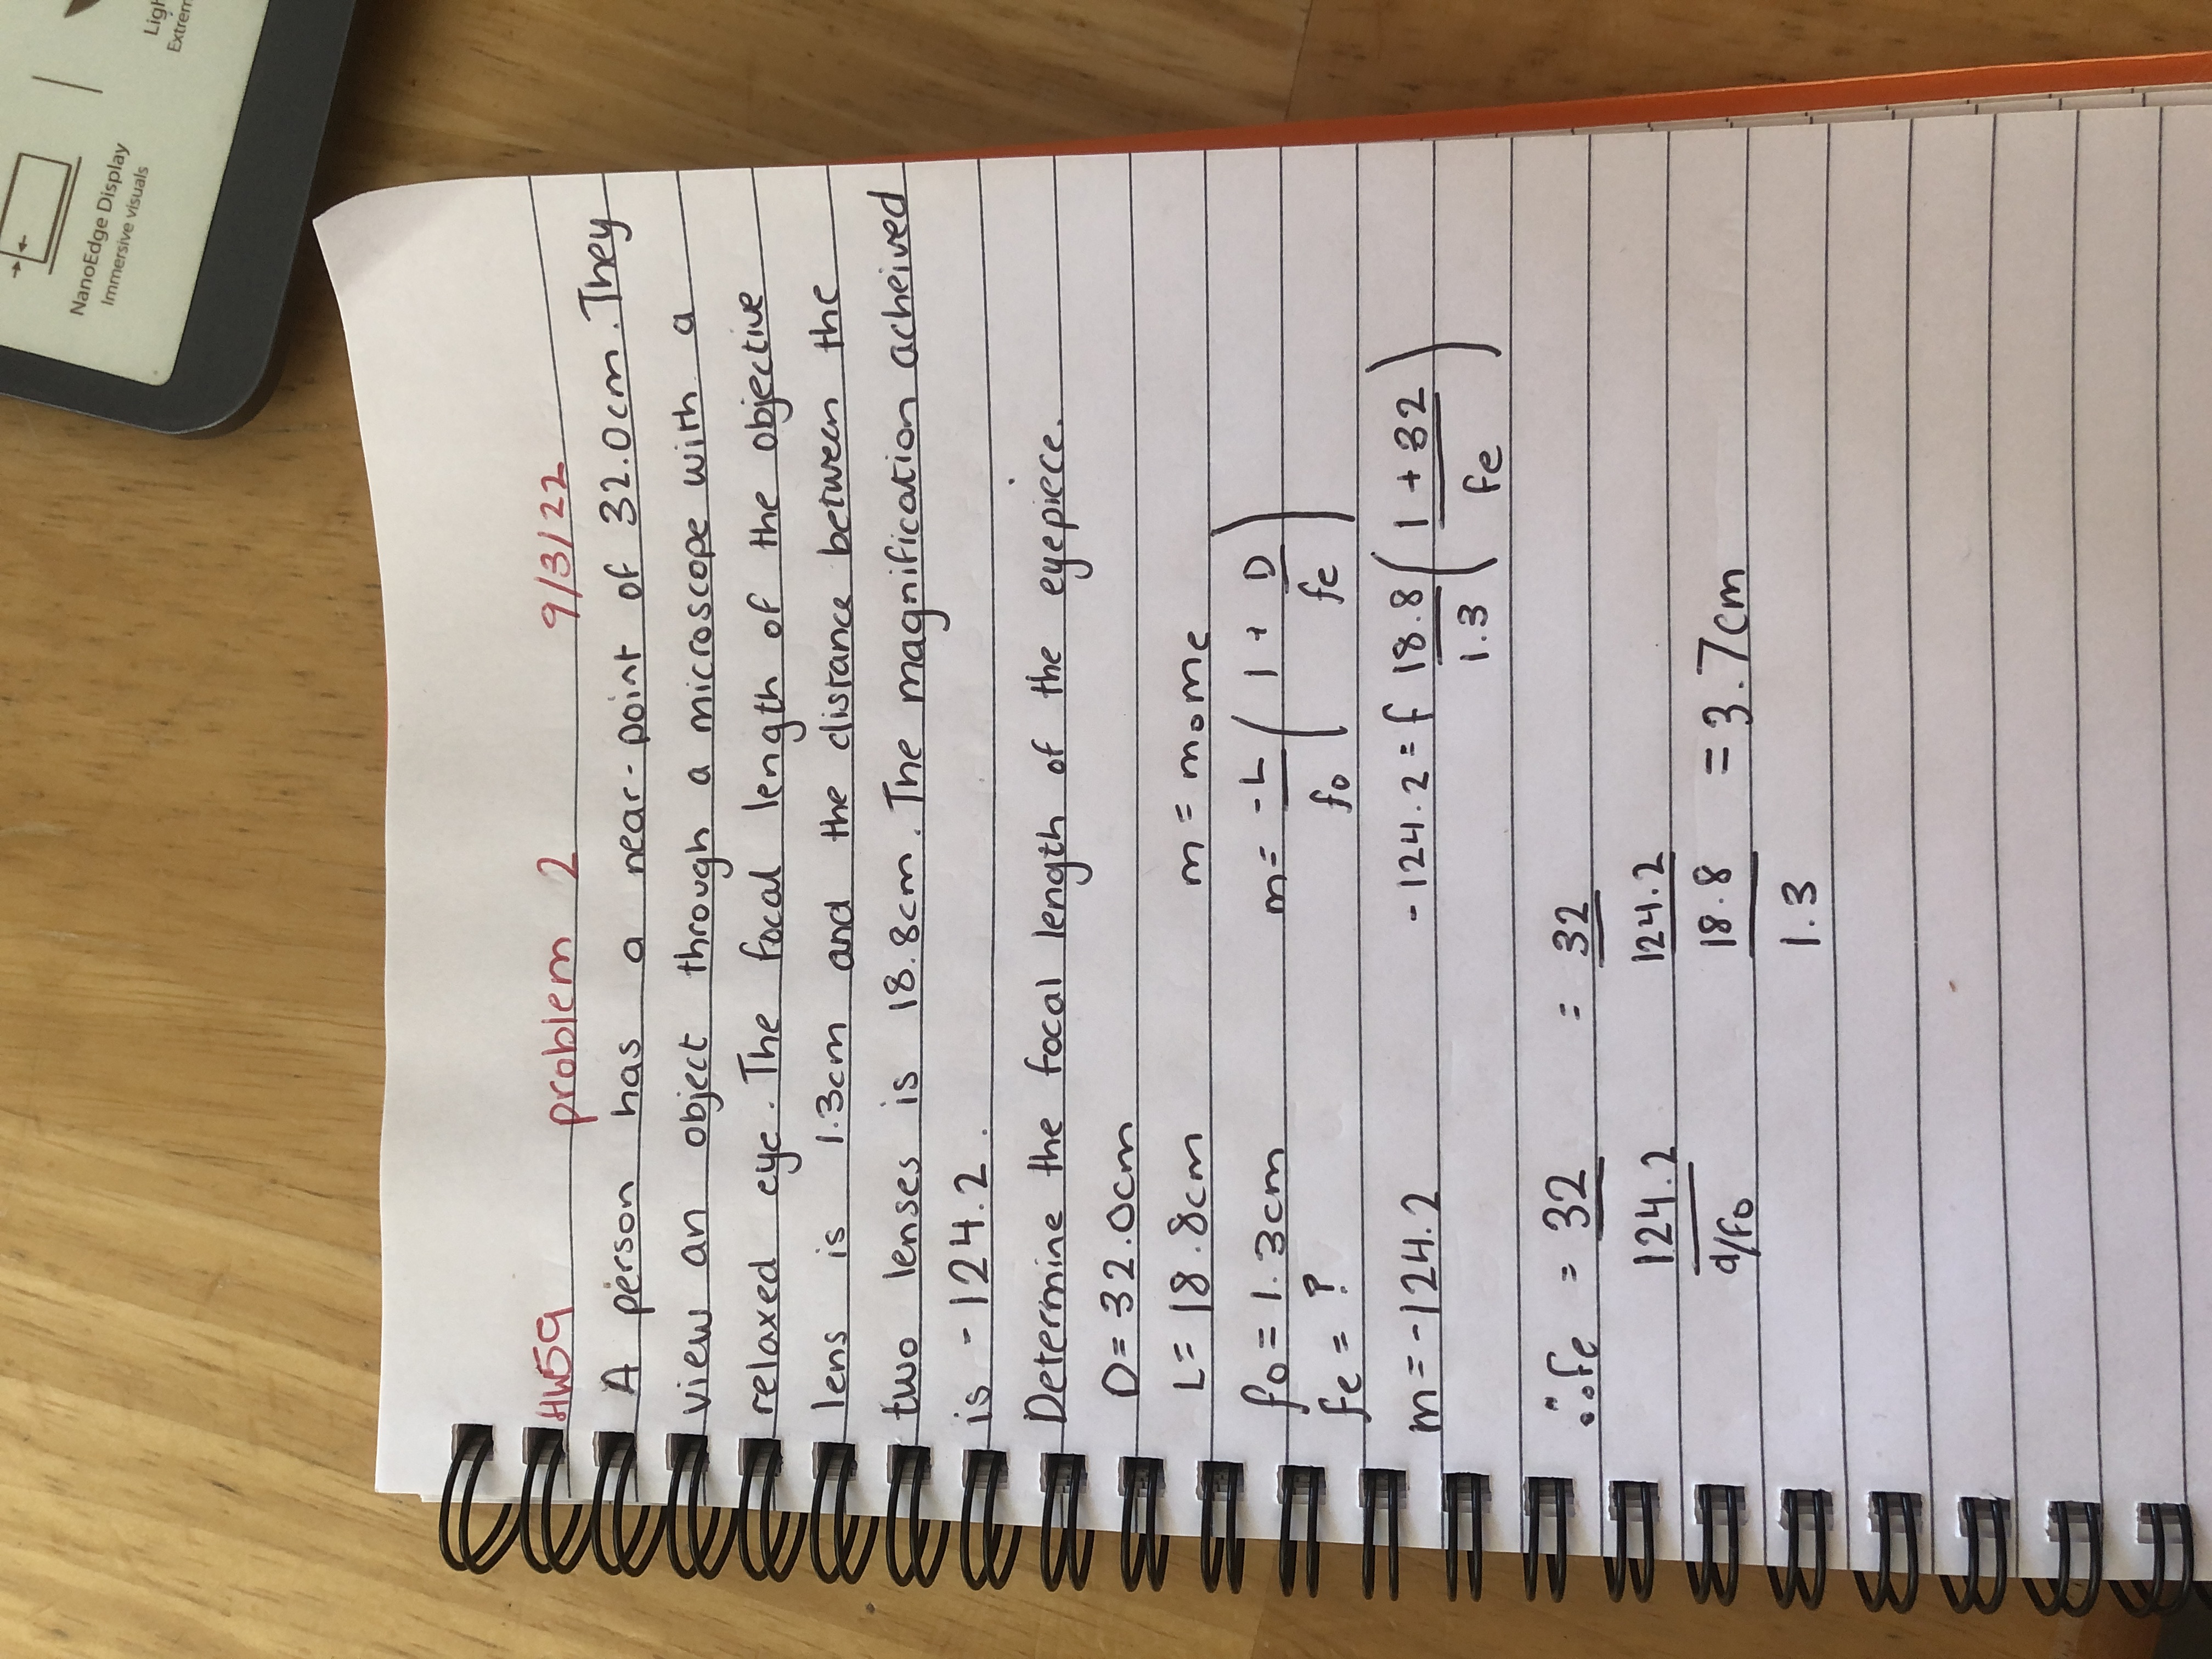 NanoEdge Display
Immersive visuals
HW59 problem 2 9/3/22
A person has a near-point of 32.0cm. They
view an object through a microscope with a
relaxed eye. The focal length of the objective
lens is 1.3cm and the distance between the
two lenses is 18.8cm. The magnification acheived
is -124.2.
Determine the focal length of the eyepiece.
D= 32.0cm
L= 18.8cm m = mome
fo = 1.3cm m= -L/fo (1 + D/fe)
fe = ?
m = -124.2 -124.2 = f 18.8/1.3 (1 + 32/fe)
∴ fe = 32 = 32
124.2 124.2
d/fo 18.8 = 3.7cm
1.3